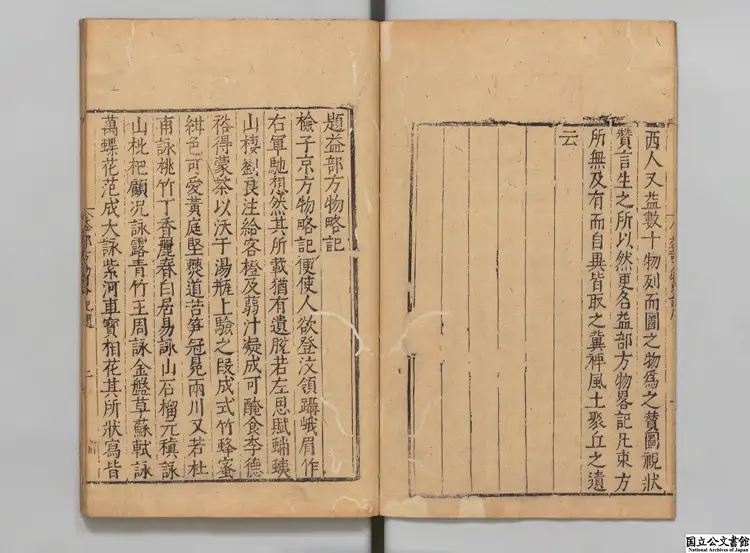 西人又益數十物列而圖之物爲之贊圖視狀
贊言生之所以然更名益部方物畧記凡東方
所無及有而自異皆取之冀裨風土聚丘之遺
云
題益部方物略記
檢子京方物略記便使人欲登汶領躡峨眉作
右軍馳想然其所載猶有遺脫若左思賦蜅蛦
山棲劉良注給客橙及蒻汁凝成可醃食李德
裕得蒙茶以沃于湯瓶上驗之段成式竹蜂蜜
紺色可愛黃庭堅僰道苦笋冠冕兩川又若杜
甫詠桃竹丁香麗春白居易詠山石榴元稹詠
山枇杷顧况詠露青竹王周詠金盤草蘇軾詠
萬蝶花范成大詠紫河車寶相花其所狀寫皆
国立公文書館
National Archives of Japan